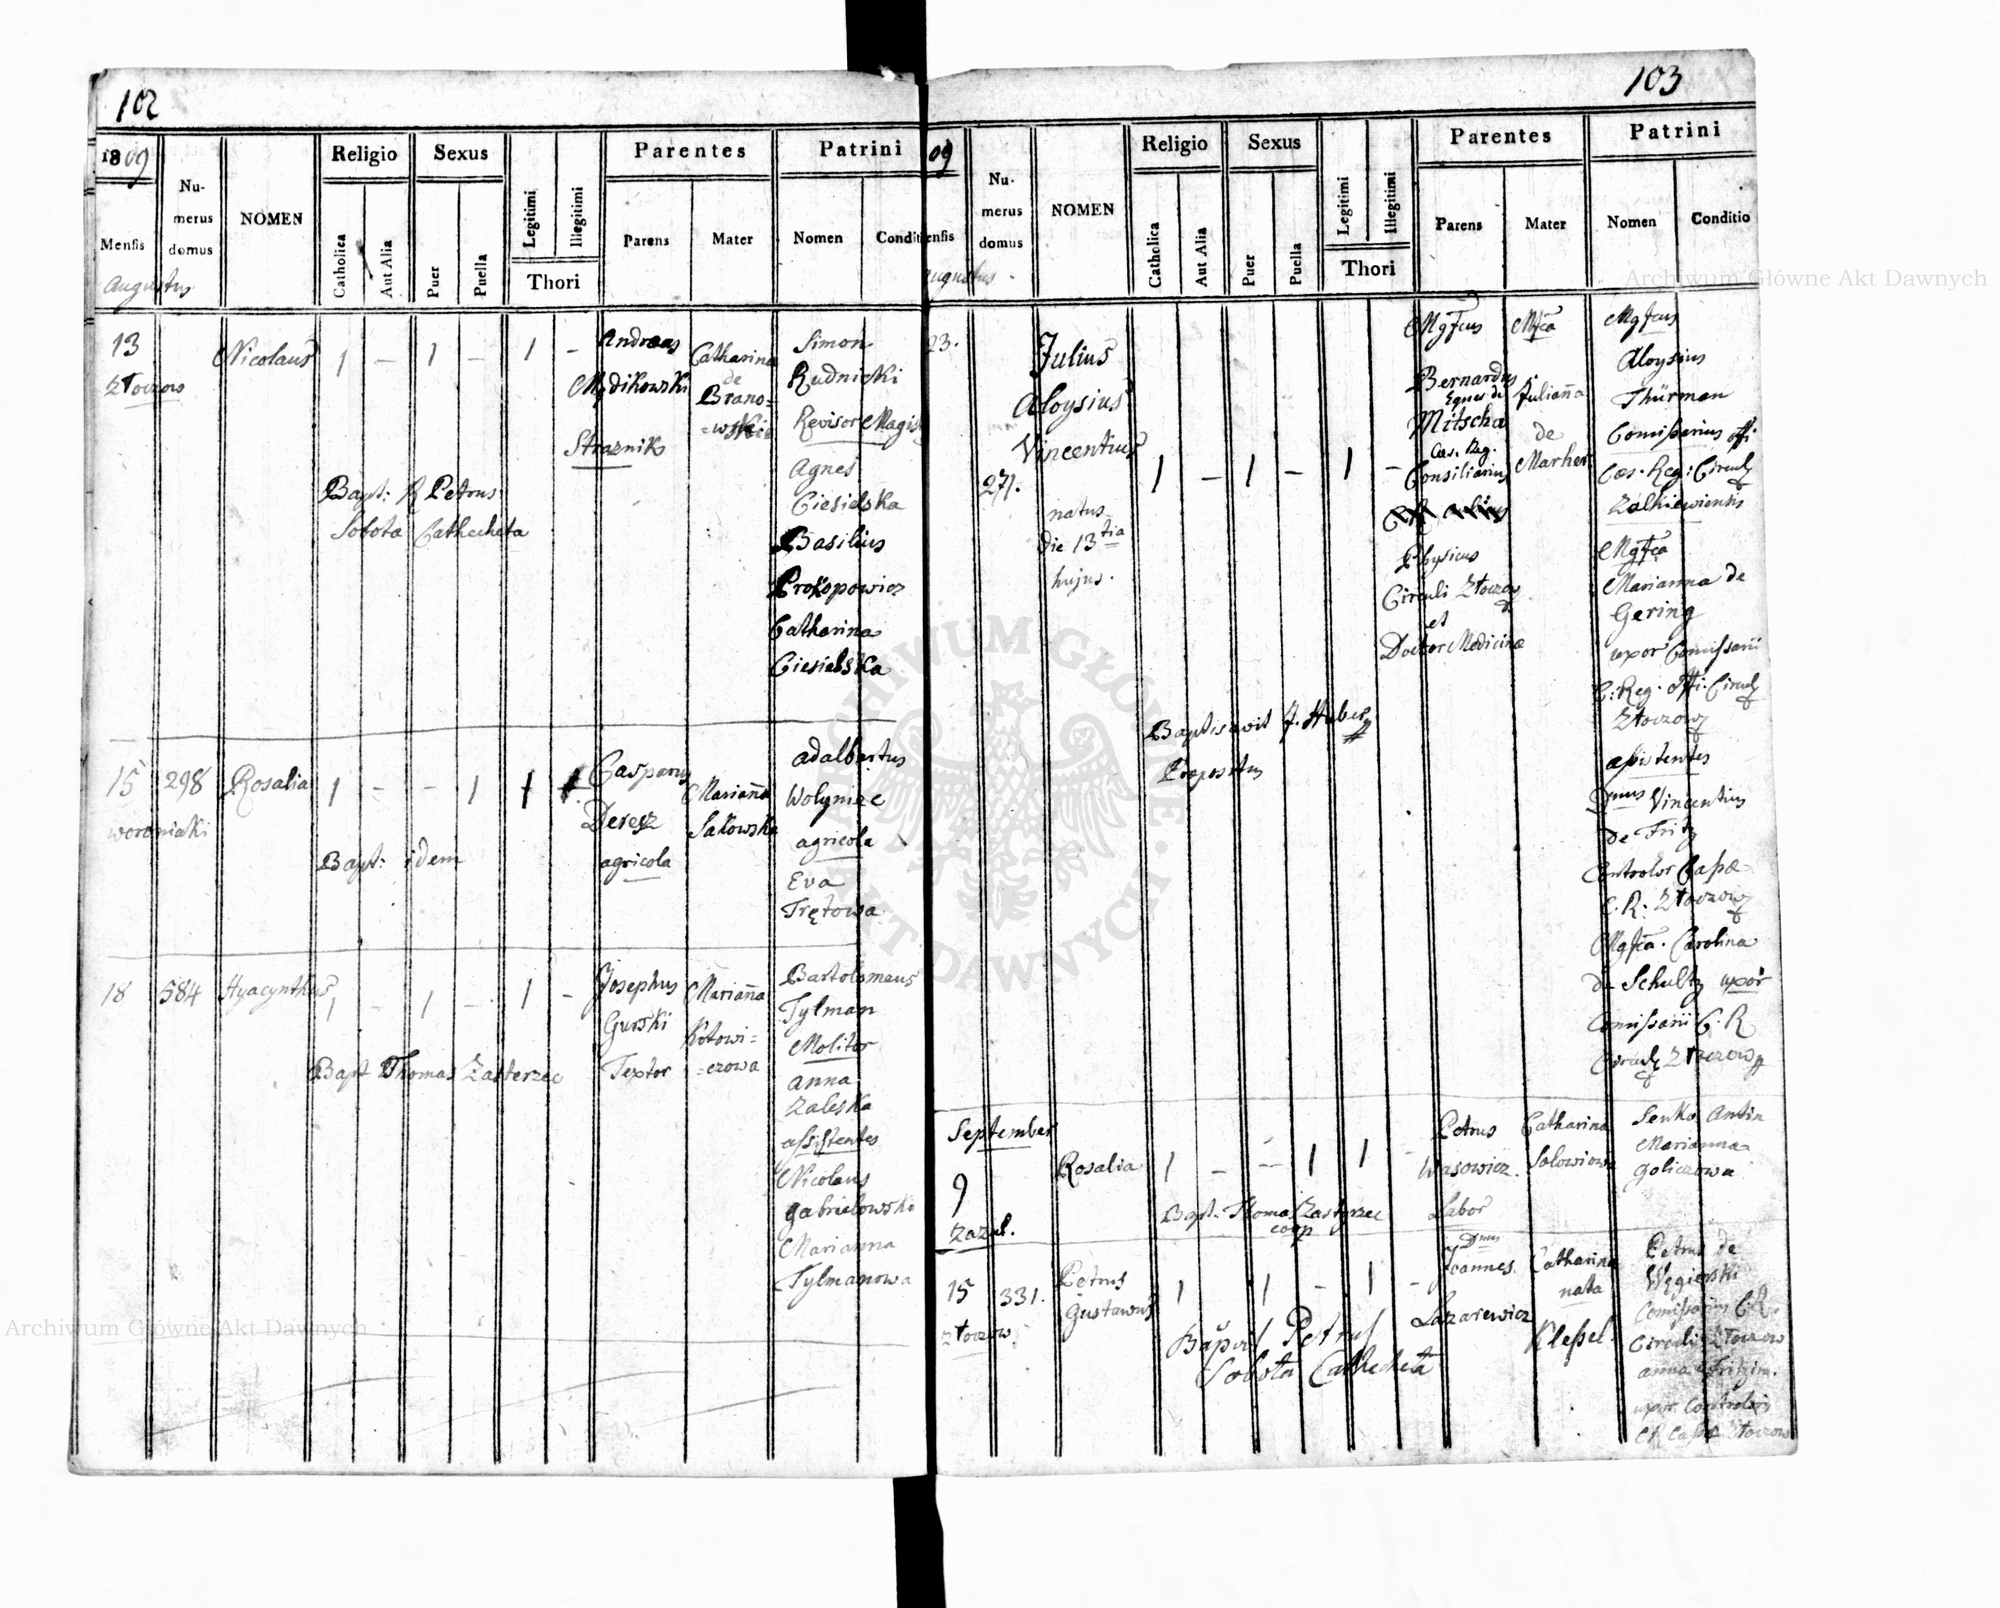 102
1809
Mensis
Augustus
Numerus domus
NOMEN
Religio
Catholica
Aut Alia
Sexus
Puer
Puella
Legitimi
Illegitimi
Thori
Parentes
Parens
Mater
Patrini
Nomen
Conditi
13
Złoczow
Nicolaus
1 – 1 – 1 –
Andreas
Mędikowski
Strażnik
Catharina
de
Brano=
=wskie
Simon
Rudnicki
Revisor Magis
Agnes
Ciesielska
Basilius
Prokopowicz
Catharina
Ciesielska
Bapt: R Petrus
Sobota Cathecheta
15 298 Rosalia
woroniaki
1 – – 1 1
Casparus
Deresz
agricola
Marianna
Sakowska
Adalbertus
Wołyniec
agricola
Eva
Trętowa
Bapt: idem
18 584 Hyacynthus
1 – 1 – 1 –
Josephus
Gurski
Textor
Marianna
Kotowi=
=czowa
Bartolomeus
Tylman
Molitor
Anna
Zaleska
assistentes
Nicolaus
Gabrielowski
Marianna
Tylmanowa
Bapt Thomas Zasterzec
103
09
ensis
ugustus
Numerus domus
NOMEN
Religio
Catholica
Aut Alia
Sexus
Puer
Puella
Legitimi
Illegitimi
Thori
Parentes
Parens
Mater
Patrini
Nomen
Conditio
23.
271.
Julius
Aloysius
Vincentius
natus
die 13tia
hujus.
1 – 1 – 1 –
Mgfcus
Bernardus
Eques de
Mitscha
Cæs. Reg.
Consiliarius
Physicus
Circuli Złoczow
et
Doctor Medicinæ
Mgfca
Julianna
de
Marher
Mgfcus
Aloysius
Thürman
Comissarius offi
Cæs. Reg: Circuli
Zolkiewiensis
Mgfca
Marianna de
Gering
uxor Comissarii
C: Reg. offi: Circuli
Złoczow
assistentes
Dnus Vincentius
de Fritz
Controlor Cassæ
C. R: Złoczow
Mgfca. Carolina
de Schultz uxor
Comissarii C: R
Circuli Złoczow
Baptisavit J. Huber
Præpositus
September
9
Zazul.
Rosalia
1 – – 1 1 –
Petrus
Wasowicz.
Labor
Catharina
Sołowiowa
Senko Antin
Marianna
Goliczowa
Bapt. Thomas Zastyrzec
coop
15 331.
Złoczow
Petrus
Gustawus
1 1 – 1 –
Dnus
Joannes
Lazarewicz
Catharina
nata
Klessel.
Petrus de
Węgierski
Comissarius C:R.
Circuli Złoczow
anna Fritzin.
uxor Controloris
CR Cassæ Złoczow
Bapvit Petrus
Sobota Cathecheta
Archiwum Główne Akt Dawnych
Archiwum Główne Akt Dawnych
ARCHIWUM GŁÓWNE AKT DAWNYCH